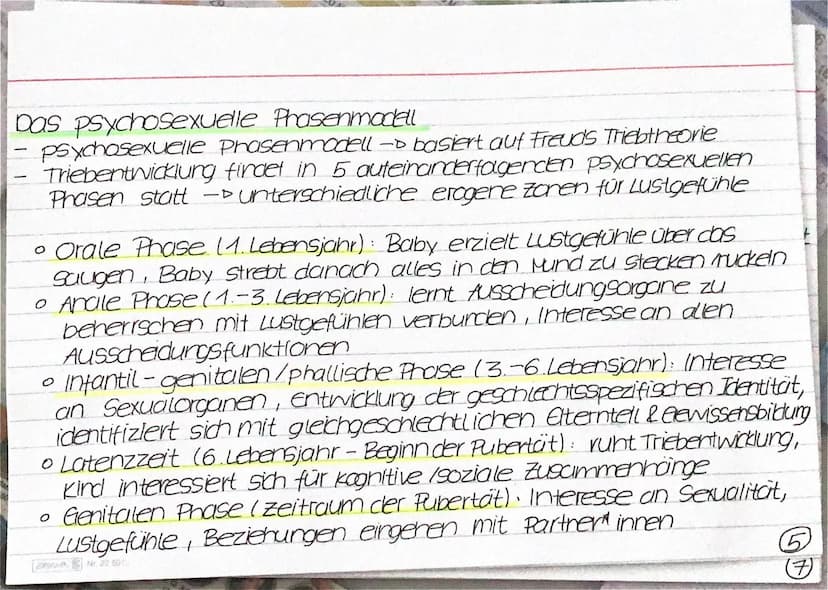 Das psychosexuelle Phasenmodell
- psychosexuelle Phasenmodell → basiert auf Freuds Triebtheorie
- Triebentwicklung findet in 5 aufeinanderfogenden psychosexuellen
Phasen statt → unterschiedliche erogene Zonen für Lustgefühle
○ Orale Phase (1. Lebensjahr): Baby erzielt Lustgefühle über das
saugen, Baby strebt danach alles in den Mund zu stecken / nuckeln
○ Anale Phase (1.-3. Lebensjahr): lernt Ausscheidungsorgane zu
beherrschen mit Lustgefühlen verbunden, Interesse an allen
Ausscheidungsfunktionen
○ Infantil-genitalen/phallische Phase (3.-6. Lebensjahr): Interesse
an Sexualorganen, Entwicklung der geschlechtsspezifischen Identität,
identifiziert sich mit gleichgeschlechtlichen Elternteil & Gewissensbildung
○ Latenzzeit (6. Lebensjahr - Beginn der Pubertät): ruht Triebentwicklung,
Kind interessiert sich für kognitive/soziale Zusammenhänge
○ Genitalen Phase (Zeitraum der Pubertät): Interesse an Sexualität,
Lustgefühle, Beziehungen eingehen mit Partner*innen
5
(7)
Nr. 22 501